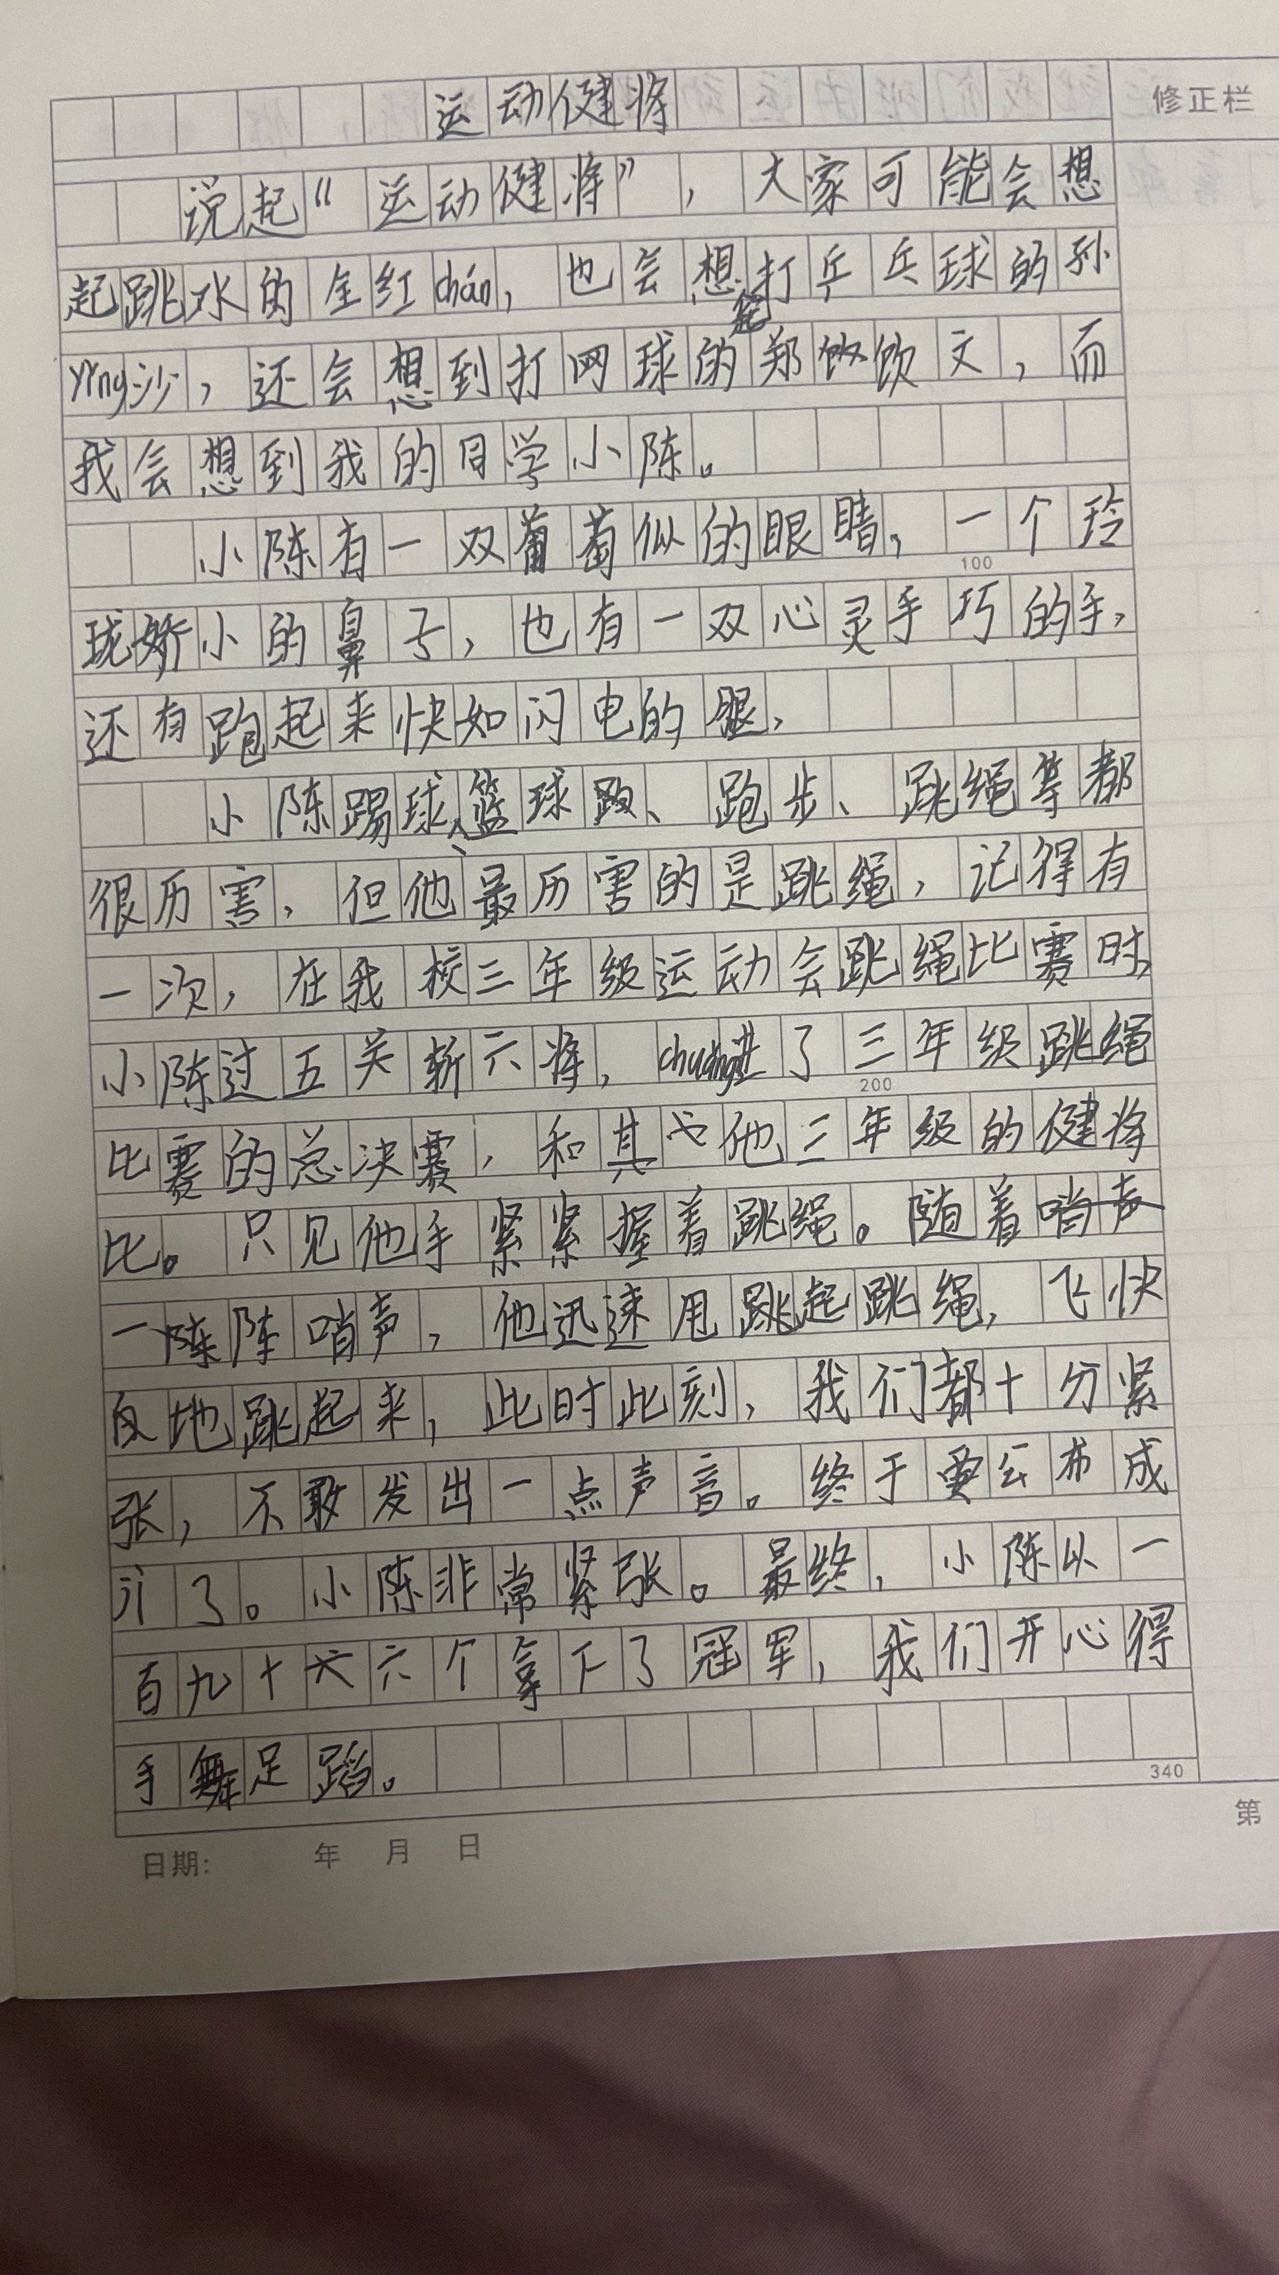 运动健将
修正栏
说起“运动健将”，大家可能会想
起跳水的全红chán，也会想起打乒乓球的孙
yǐng沙，还会想到打网球的郑钦文，而
我会想到我的同学小陈。
小陈有一双葡萄似的眼睛，一个玲
100
珑娇小的鼻子，也有一双心灵手巧的手，
还有跑起来快如闪电的腿，
小陈踢球、篮球、跑步、跳绳等都
很历害，但他最历害的是跳绳，记得有
一次，在我校三年级运动会跳绳比赛时，
小陈过五关斩六将，chuǎng进了三年级跳绳
200
比赛的总决赛，和其他三年级的健将
比。只见他手紧紧握着跳绳。随着
一阵阵哨声，他迅速甩起跳绳，飞快
地跳起来，此时此刻，我们都十分紧
张，不敢发出一点声音。终于要公布成
了。小陈非常紧张。最终，小陈以一
百九十六个拿下了冠军，我们开心得
手舞足蹈。
340
日期： 年 月 日
第